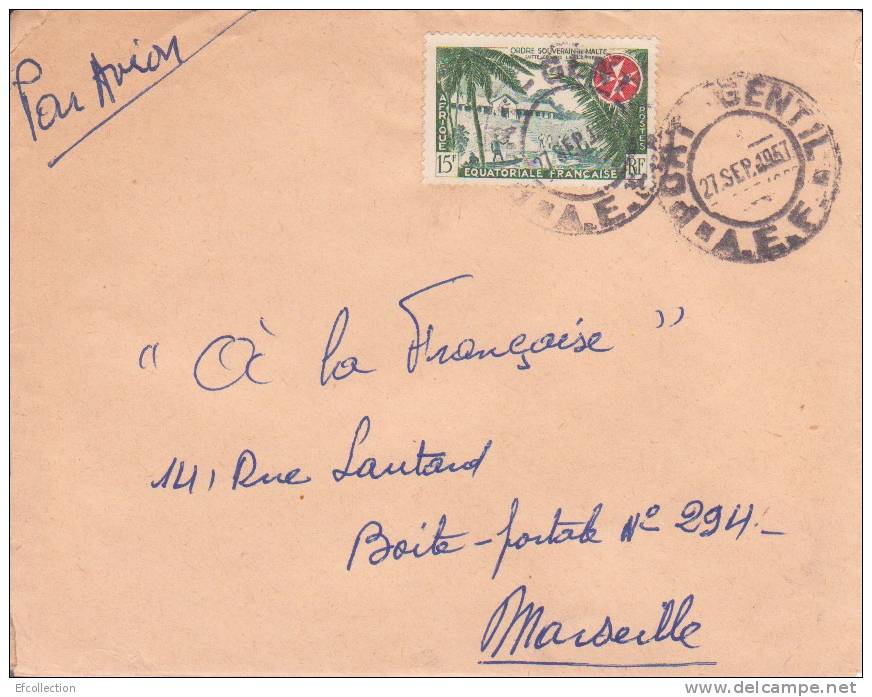 Par Avion
ORDRE SOUVERAIN DE MALTE
LUTTE CONTRE LA LÈPRE
AFRIQUE
POSTES
15F
EQUATORIALE FRANÇAISE
RF
27 SEP.
A.E.F.
PORT GENTIL
27 SEP. 1957
A.E.F.
" à la Française "
14, Rue Lautard
Boite-postale N° 294.-
Marseille
Efcollection
www.delcampe.net